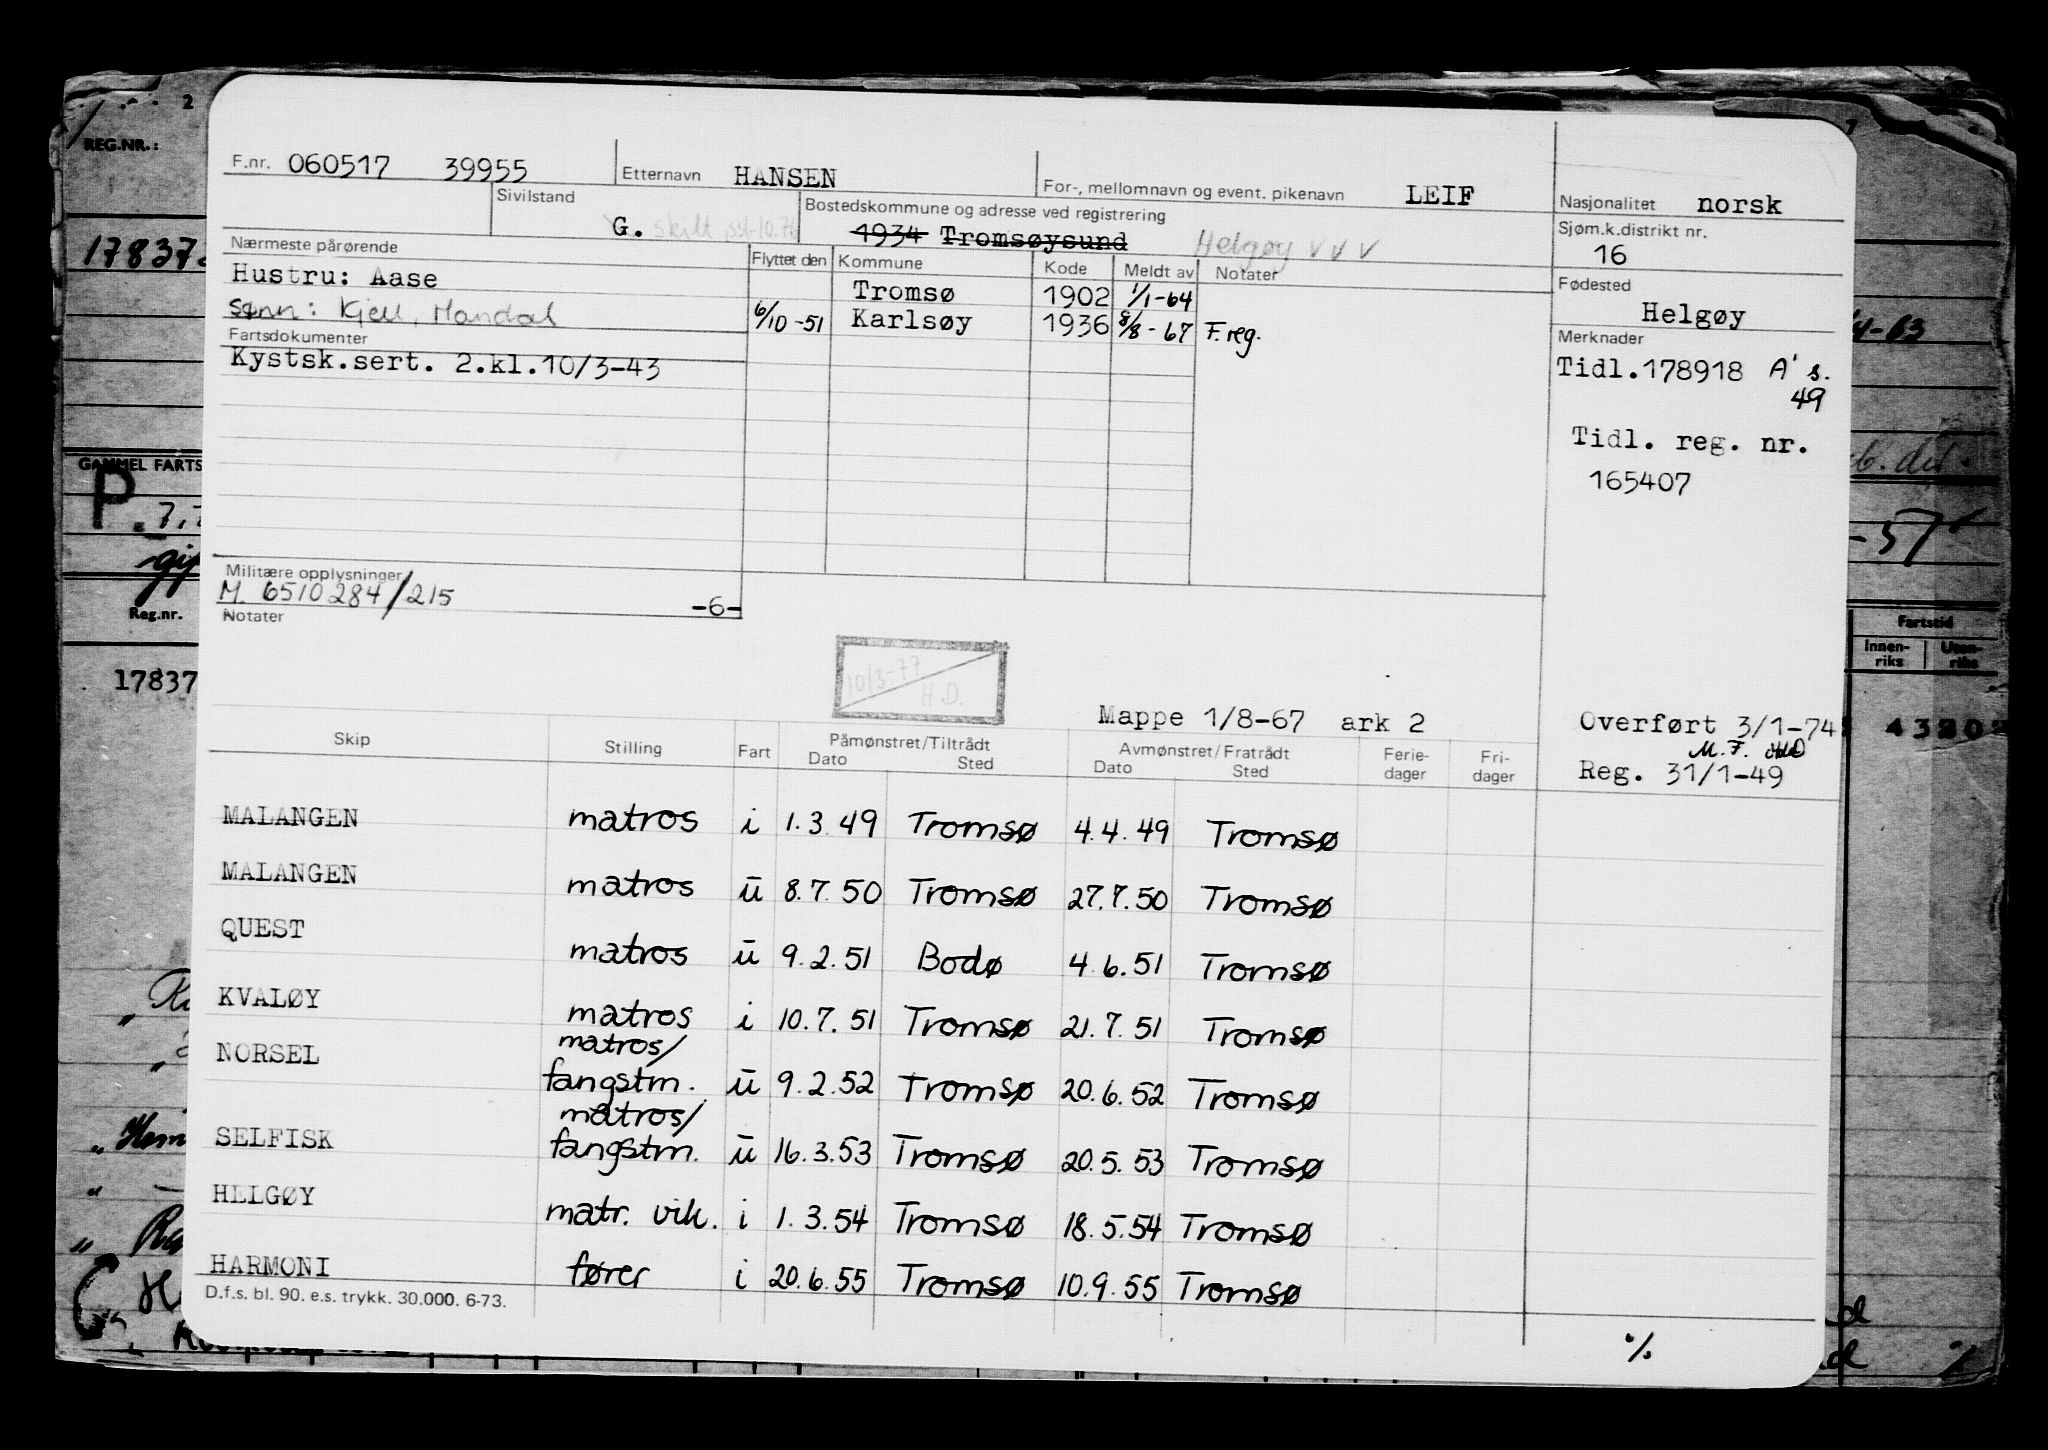 REG.NR.:
F.nr. 060517 39955 Etternavn HANSEN For-, mellomnavn og event. pikenavn LEIF Nasjonalitet norsk
Sivilstand G. skilt Bostedskommune og adresse ved registrering 1934 Tromsøysund Helgøy V V V
Sjøm.k.distrikt nr. 16
Nærmeste pårørende
Hustru: Aase
Sønn: Kjell, Mandal
Flyttet den Kommune Kode Meldt av Notater
Tromsø 1902 1/1-64
6/10-51 Karlsøy 1936 8/8-67 F.reg.
Fødested
Helgøy
Fartsdokumenter
Kystsk.sert. 2.kl.10/3-43
Merknader
Tidl.178918 A' s.
49
Tidl. reg. nr.
165407
Militære opplysninger
M. 6510284/215 -6-
Notater
10/3-77
H.D.
Mappe 1/8-67 ark 2
Overført 3/1-74
M.F.
Reg. 31/1-49
Skip Stilling Fart Påmønstret/Tiltrådt Dato Sted Avmønstret/Fratrådt Dato Sted Ferie-dager Fri-dager
MALANGEN matros i 1.3.49 Tromsø 4.4.49 Tromsø
MALANGEN matros u 8.7.50 Tromsø 27.7.50 Tromsø
QUEST matros u 9.2.51 Bodø 4.6.51 Tromsø
KVALØY matros i 10.7.51 Tromsø 21.7.51 Tromsø
NORSEL matros/
fangstm. u 9.2.52 Tromsø 20.6.52 Tromsø
SELFISK matros/
fangstm. u 16.3.53 Tromsø 20.5.53 Tromsø
HELGØY matr. vik. i 1.3.54 Tromsø 18.5.54 Tromsø
HARMONI fører i 20.6.55 Tromsø 10.9.55 Tromsø
D.f.s. bl. 90. e.s. trykk. 30.000. 6-73.
GAMMEL FARTS
P
Reg.nr.
17837
Fartstid
Innen-riks Uten-riks